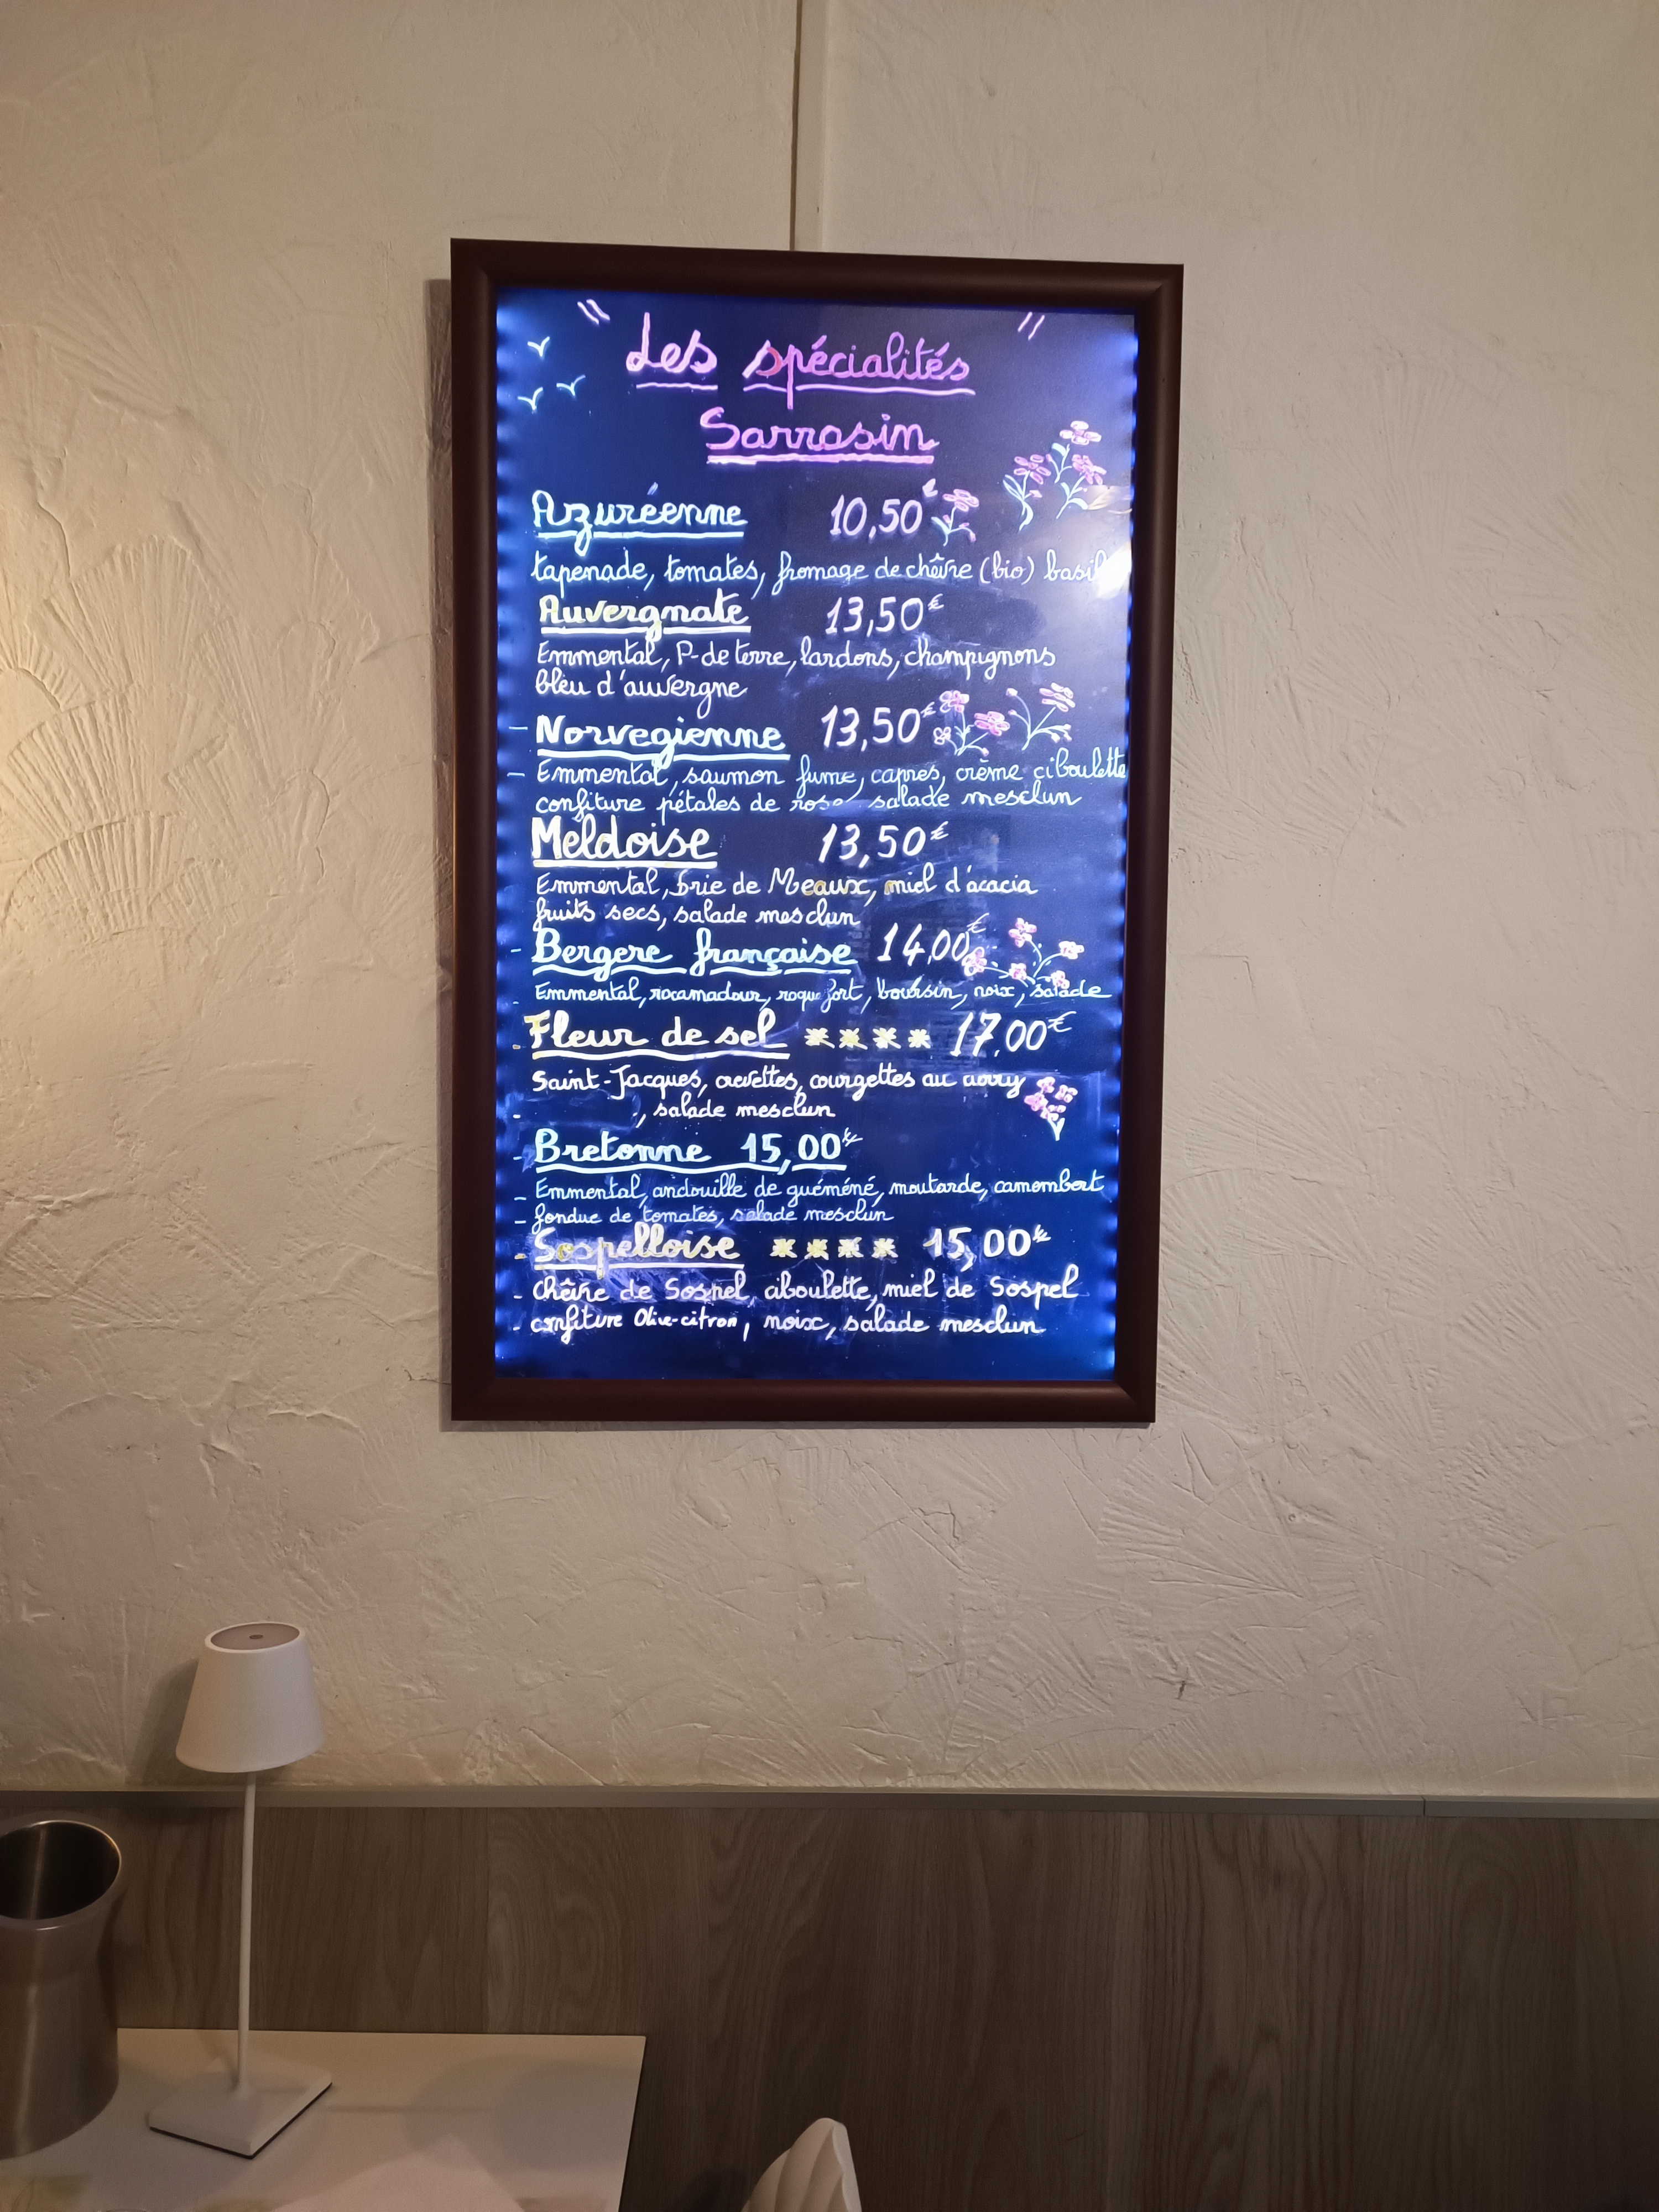 " Les spécialités "
Sarrasin
Azuréenne 10,50€
tapenade, tomates, fromage de chèvre (bio)
Auvergnate 13,50€
Emmental, P-de terre, lardons, champignons
bleu d'auvergne
- Norvegienne 13,50€
- Emmental, saumon fumé, capres, crème ciboulette
confiture pétales de rose, salade mesclun
Meldoise 13,50€
Emmental, brie de Meaux, miel d'acacia
fruits secs, salade mesclun
- Bergere française 14,00€
- Emmental, rocamadour, roquefort, boursin, noix, salade
- Fleur de sel **** 17,00€
Saint-Jacques, crevettes, courgettes au curry
- , salade mesclun
- Bretonne 15,00€
- Emmental, andouille de guéméné, moutarde, camembert
- fondue de tomates, salade mesclun
- Sospelloise **** 15,00€
- Chèvre de Sospel, ciboulette, miel de Sospel
- confiture Olive-citron, noix, salade mesclun